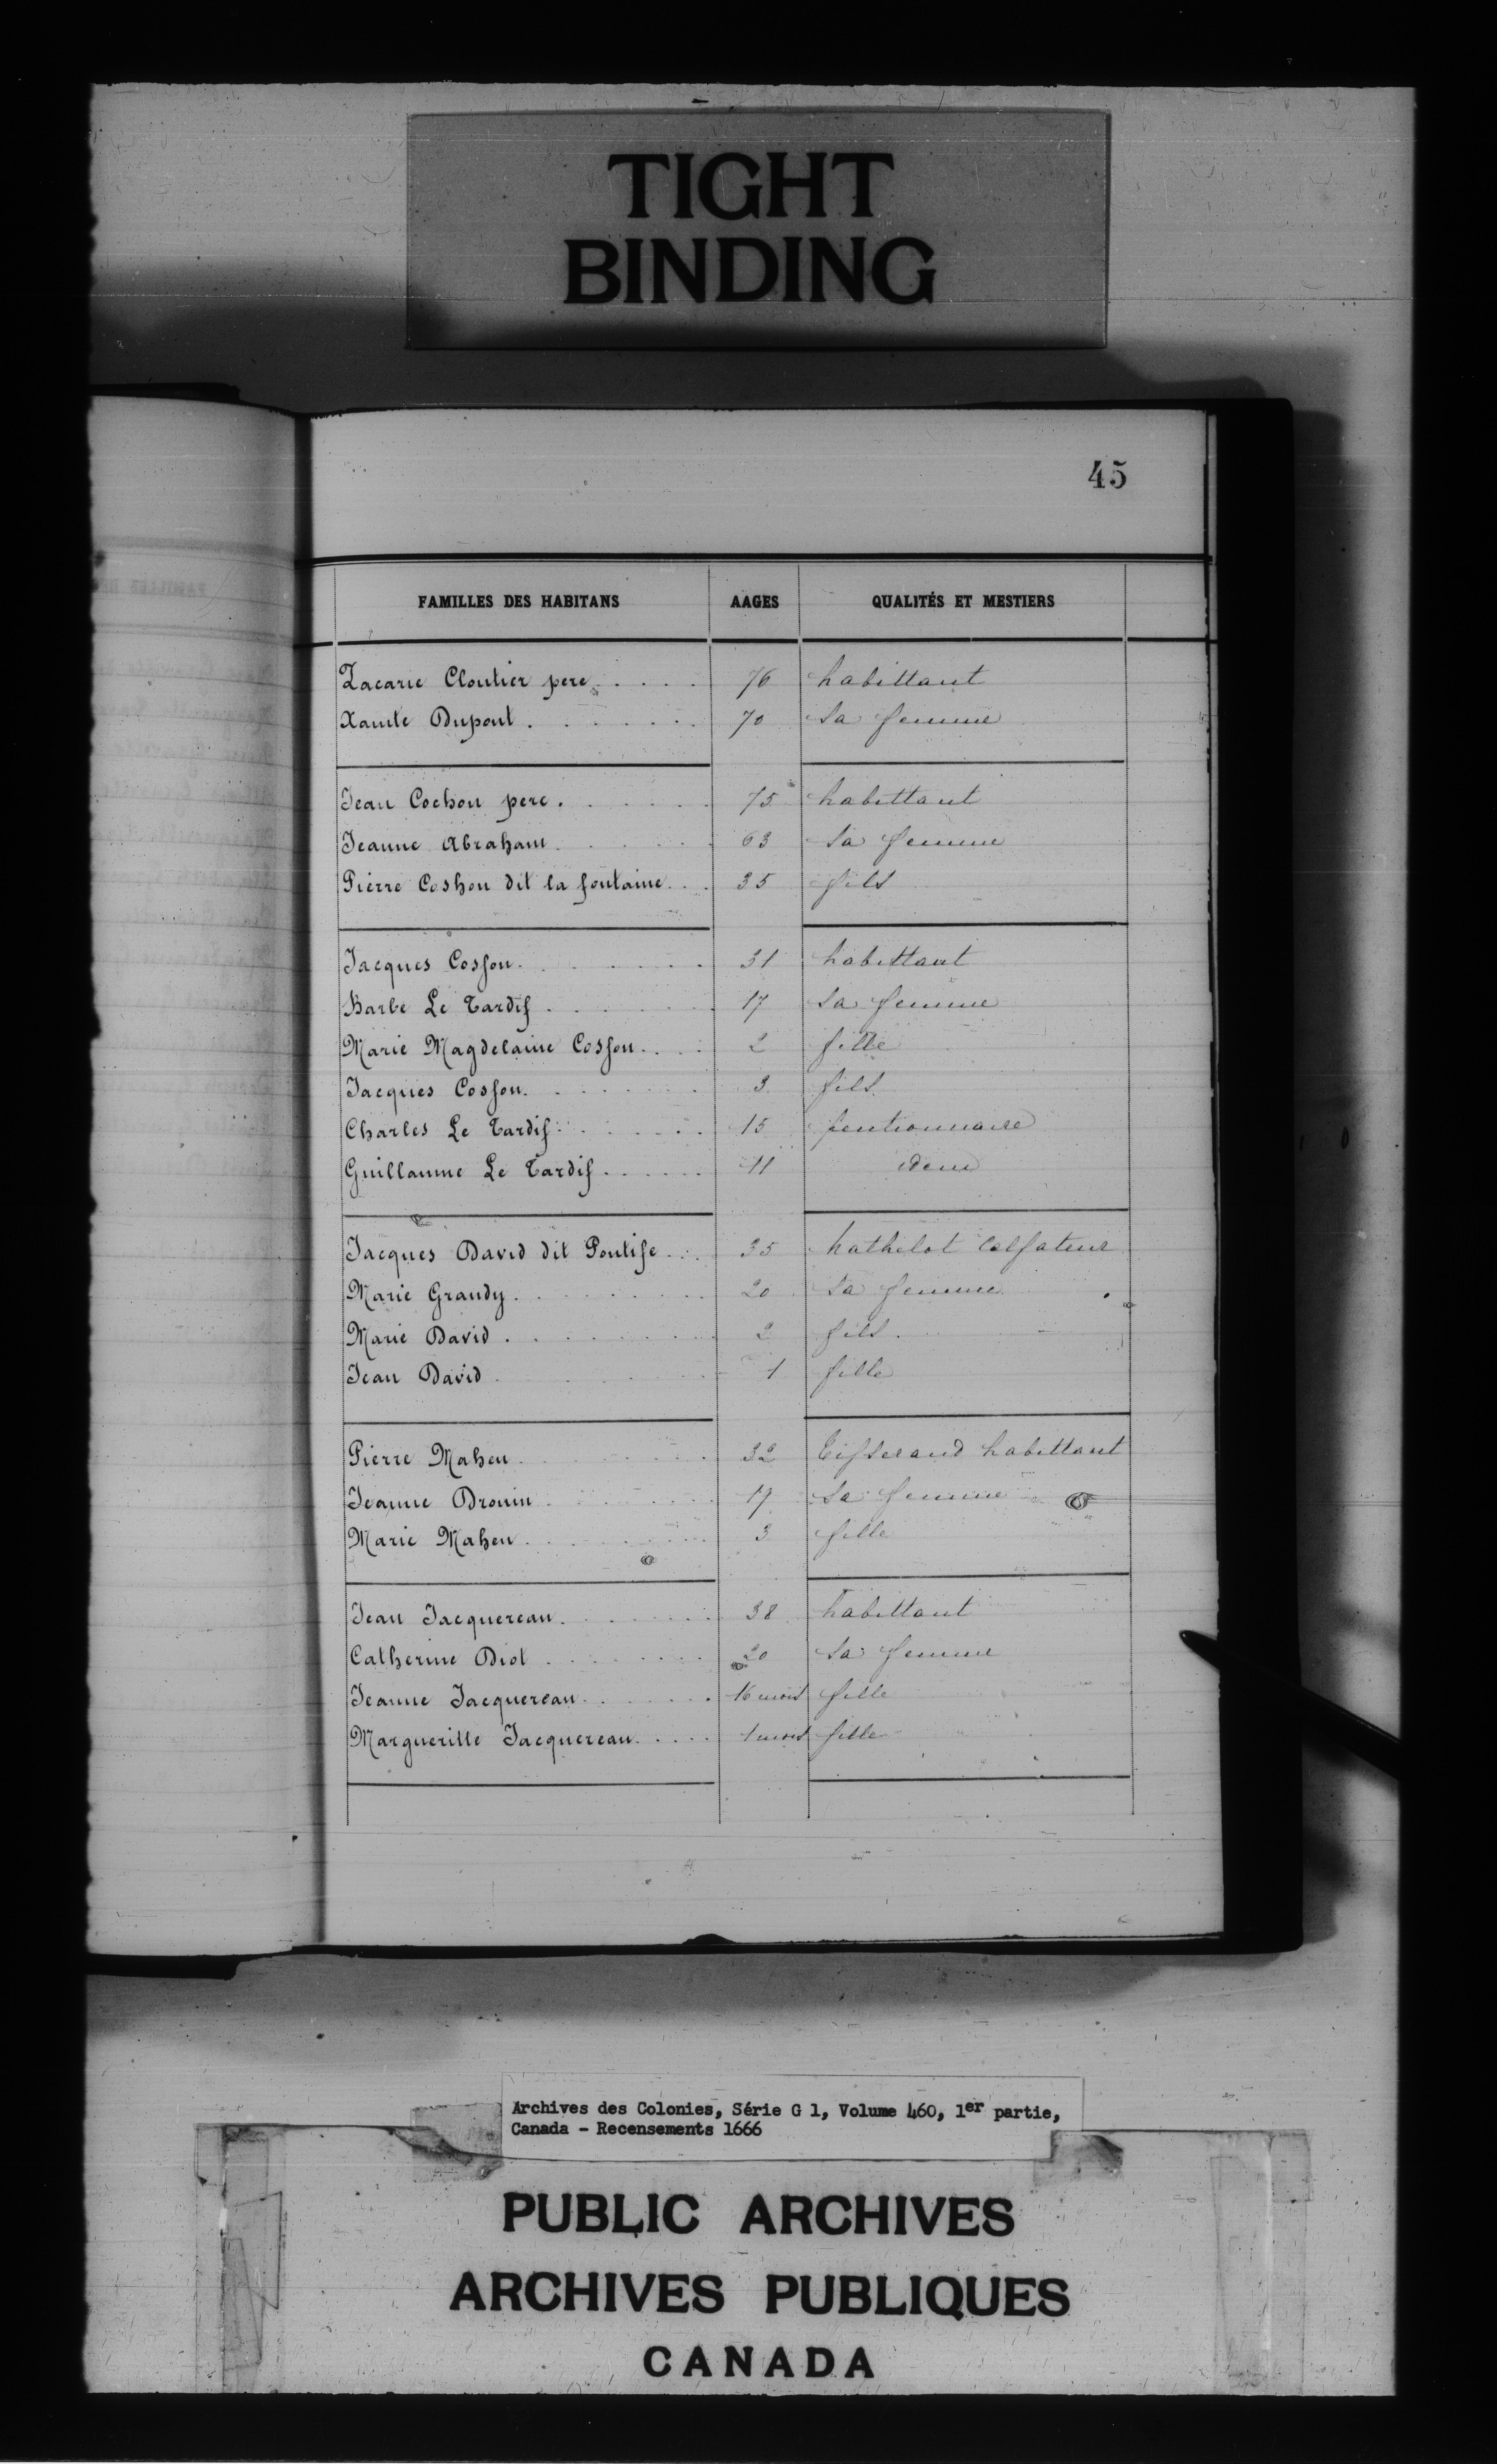 TIGHT
BINDING
45
FAMILLES DES HABITANS AAGES QUALITÉS ET MESTIERS
Zacarie Cloutier pere 76 habittant
Xainte Dupont 70 sa femme
Jean Cochon pere 75 habittant
Jeanne Abraham 63 sa femme
Pierre Coshon dit la fontaine 35 fils
Jacques Cosson 31 habittant
Barbe Le Tardif 17 sa femme
Marie Magdelaine Cosson 2 fille
Jacques Cosson 3 fils
Charles Le Tardif 15 pentionnaire
Guillaume Le Tardif 11 idem
Jacques David dit Pontife 35 mathelot calfateur
Marie Grandy 20 sa femme
Marie David 2 fils
Jean David 1 fille
Pierre Maheu 32 tisserand habittant
Jeanne Drouin 19 sa femme
Marie Maheu 3 fille
Jean Jacquereau 38 habittant
Catherine Diot 20 sa femme
Jeanne Jacquereau 16 mois fille
Margueritte Jacquereau 1 mois fille
Archives des Colonies, Série G 1, Volume 460, 1er partie,
Canada - Recensements 1666
PUBLIC ARCHIVES
ARCHIVES PUBLIQUES
CANADA